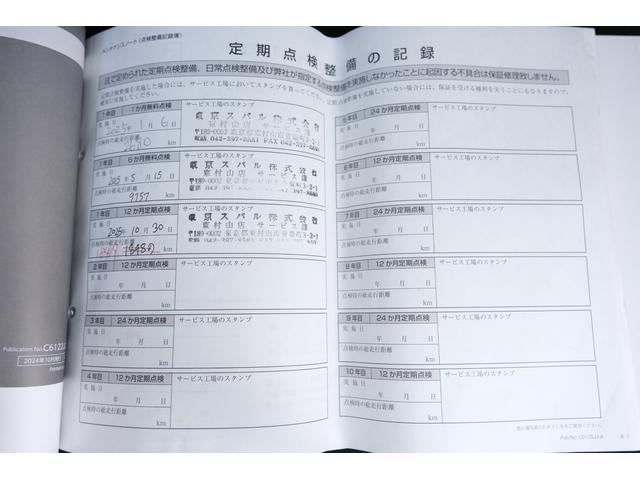 メンテナンスノート(点検整備記録簿)
定期点検整備の記録
法で定められた定期点検整備、日常点検整備及び弊社が指定する点検整備を実施しなかったことに起因する不具合は保証修理致しません。
1年目 1か月無料点検
サービス工場のスタンプ
実施日
2025年 1月 6日
点検時の総走行距離
km
東京スバル株式会社
東村山店 サービス課
1年目 6か月無料点検
サービス工場のスタンプ
実施日
2025年 5月 15日
点検時の総走行距離
9757 km
東京スバル株式会社
東村山店 サービス課
1年目 12か月定期点検
サービス工場のスタンプ
実施日
2025年 10月 30日
点検時の総走行距離
km
東京スバル株式会社
東村山店 サービス課
〒189-0002 東京都東村山市青葉町3-2-1
2年目 12か月定期点検
サービス工場のスタンプ
実施日
年 月 日
点検時の総走行距離
km
3年目 24か月定期点検
サービス工場のスタンプ
実施日
年 月 日
点検時の総走行距離
km
4年目 12か月定期点検
サービス工場のスタンプ
実施日
年 月 日
点検時の総走行距離
km
5年目 24か月定期点検
サービス工場のスタンプ
実施日
年 月 日
点検時の総走行距離
km
6年目 12か月定期点検
サービス工場のスタンプ
実施日
年 月 日
点検時の総走行距離
km
7年目 24か月定期点検
サービス工場のスタンプ
実施日
年 月 日
点検時の総走行距離
km
8年目 12か月定期点検
サービス工場のスタンプ
実施日
年 月 日
点検時の総走行距離
km
9年目 24か月定期点検
サービス工場のスタンプ
実施日
年 月 日
点検時の総走行距離
km
10年目 12か月定期点検
サービス工場のスタンプ
実施日
年 月 日
点検時の総走行距離
km
Publication No.
2024年10月発行